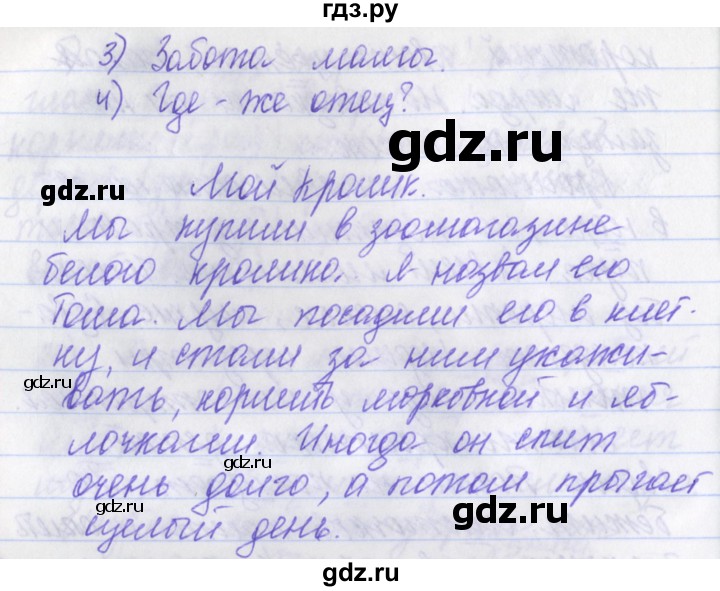 гдз.ру
3) Забота мамы.
4) Где-же отец?
gdz.ru
gdz.ru
Мой кролик.
Мы купили в зоомагазине
белого кролика. Я назвал его
Тоша. Мы посадили его в клет-
ку, и стали за ним ухажи-
gdz.ru
вать, кормить морковкой и яб-
лочками. Иногда он спит
gdz.ru
очень долго, а потом прыгает
gdz.ru
целый день.
gdz.ru